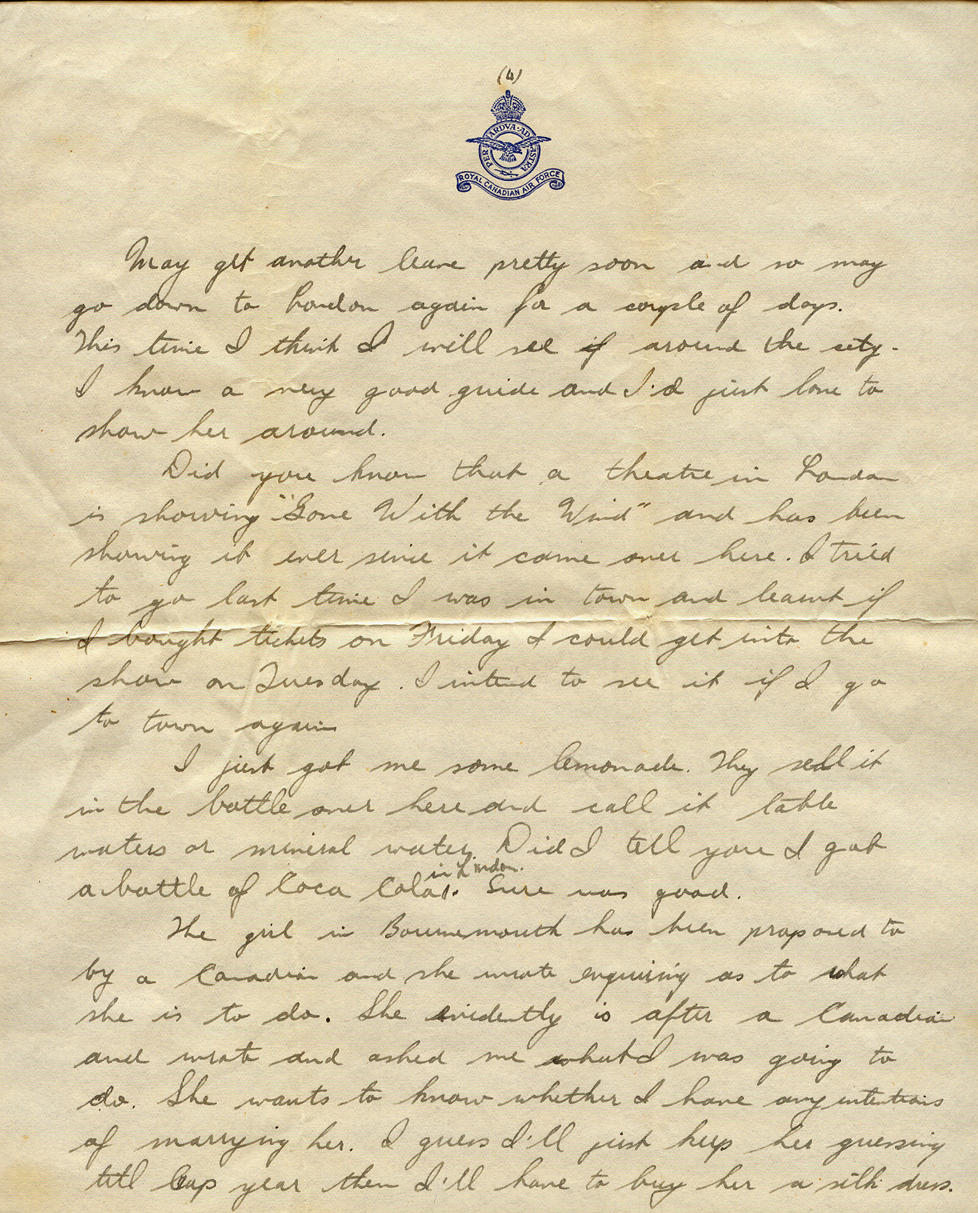 (4)
PER ARDVA AD ASTRA
ROYAL CANADIAN AIR FORCE
May get another leave pretty soon and so may
go down to London again for a couple of days.
This time I think I will see if around the city.
I know a very good guide and I'd just love to
show her around.
Did you know that a theatre in London
is showing "Gone With the Wind" and has been
showing it ever since it came over here. I tried
to go last time I was in town and learnt if
I bought tickets on Friday I could get into the
show on Tuesday. I intend to see it if I go
to town again
I just got me some lemonade. They sell it
in the bottle over here and call it table
waters or mineral water. Did I tell you I got
in London.
a bottle of Coca Cola. Sure was good.
The girl in Bournemouth has been proposed to
by a Canadian and she wrote enquiring as to what
she is to do. She evidently is after a Canadian
and wrote and asked me what I was going to
do. She wants to know whether I have any intentions
of marrying her. I guess I'll just keep her guessing
till leap year then I'll have to buy her a silk dress.